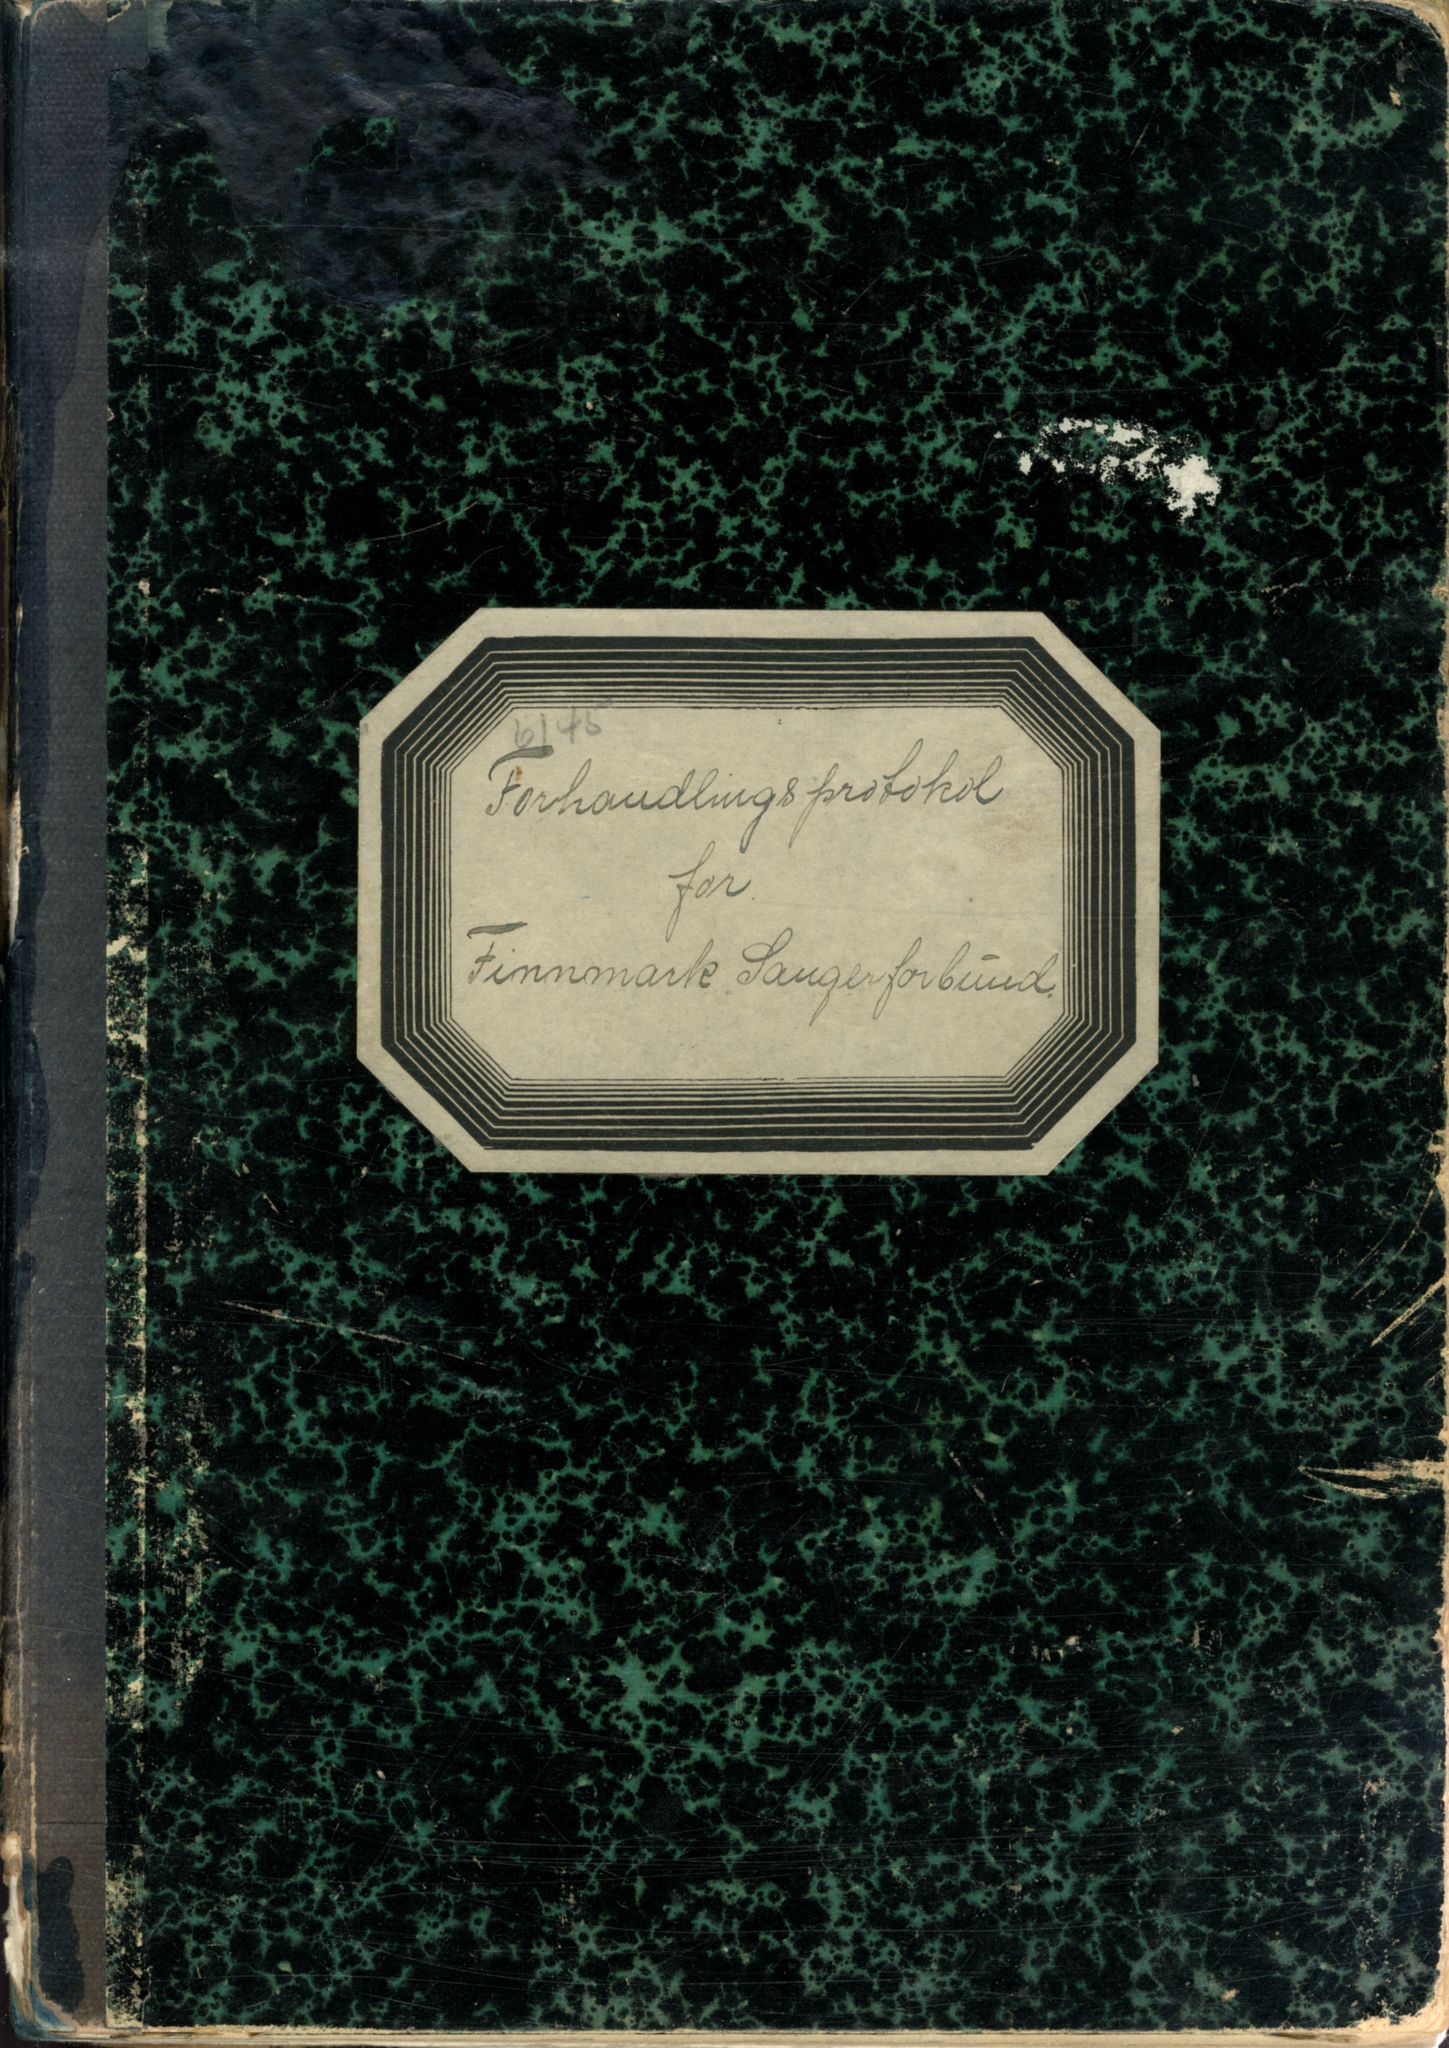 6/45
Forhandlingsprotokol
for
Finnmark Sangerforbund.